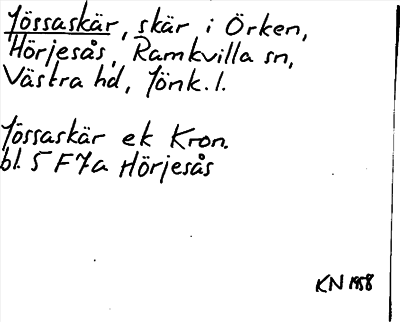 Jössaskär, skär i Örken,
Hörjesås, Ramkvilla sn,
Västra hd, Jönk. l.
Jössaskär ek Kron.
bl. 5 F 7a Hörjesås
KN 1958